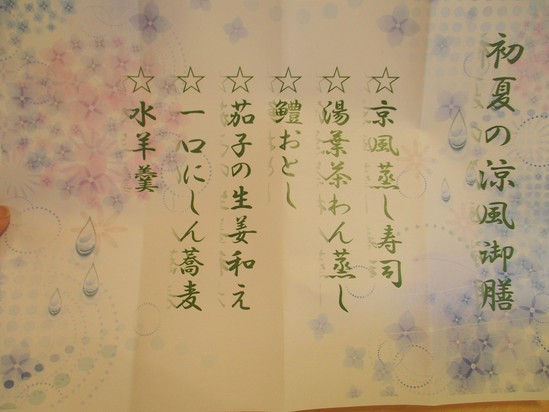 初夏の涼風御膳
☆京風蒸し寿司
☆湯葉茶わん蒸し
☆鱧おとし
☆茄子の生姜和え
☆一口にしん蕎麦
☆水羊羹